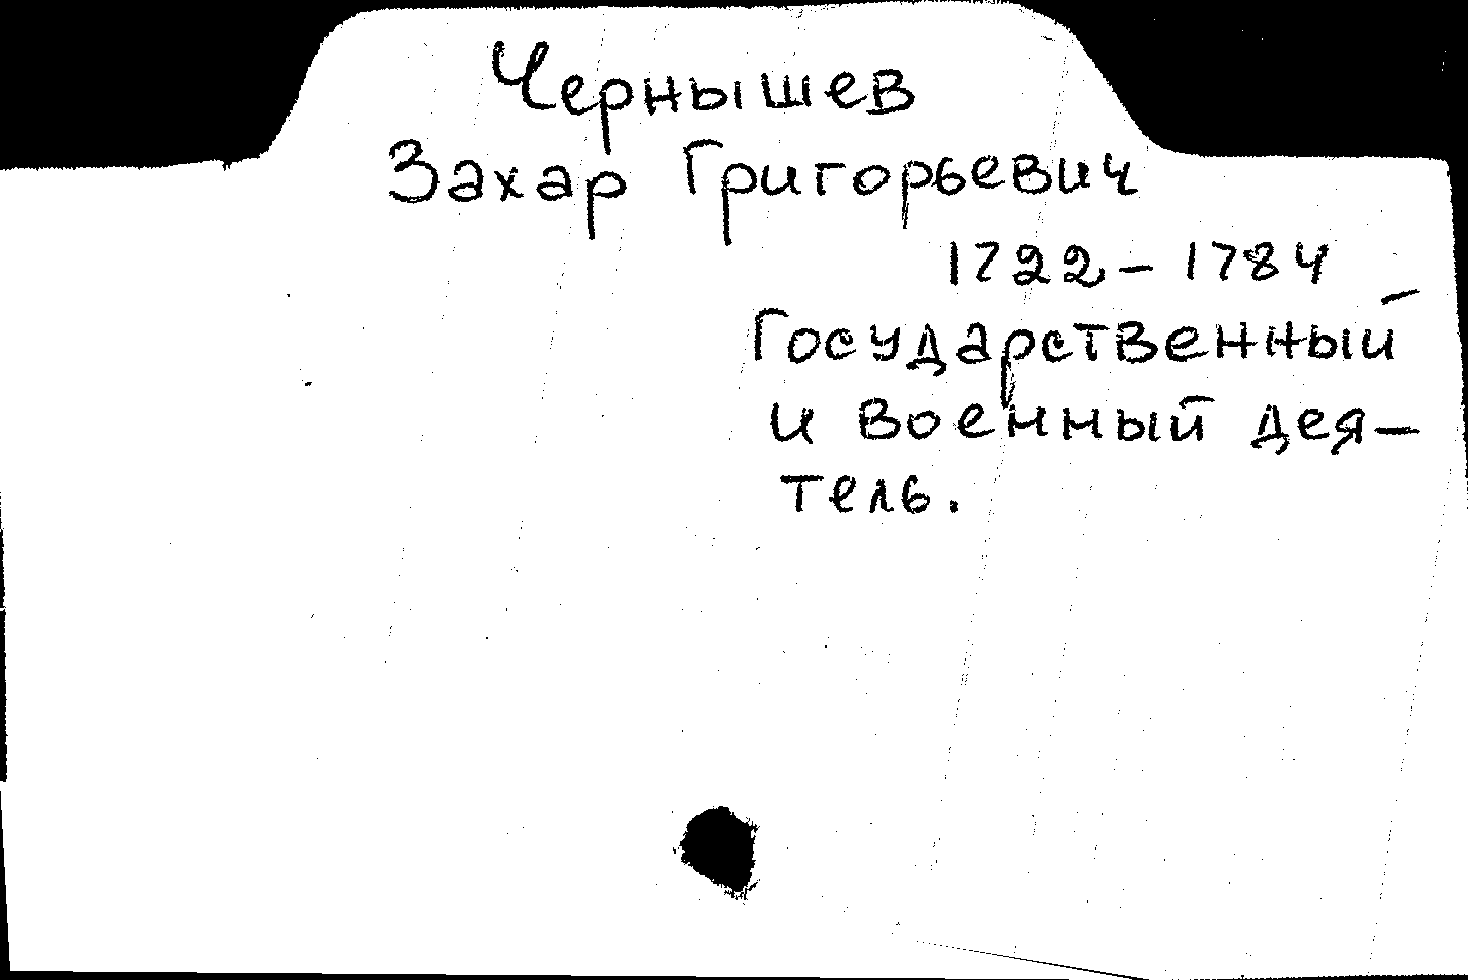 Чернышев
Захар Григорьевич
1722 - 1784
Государственный
и военный дея-
тель.